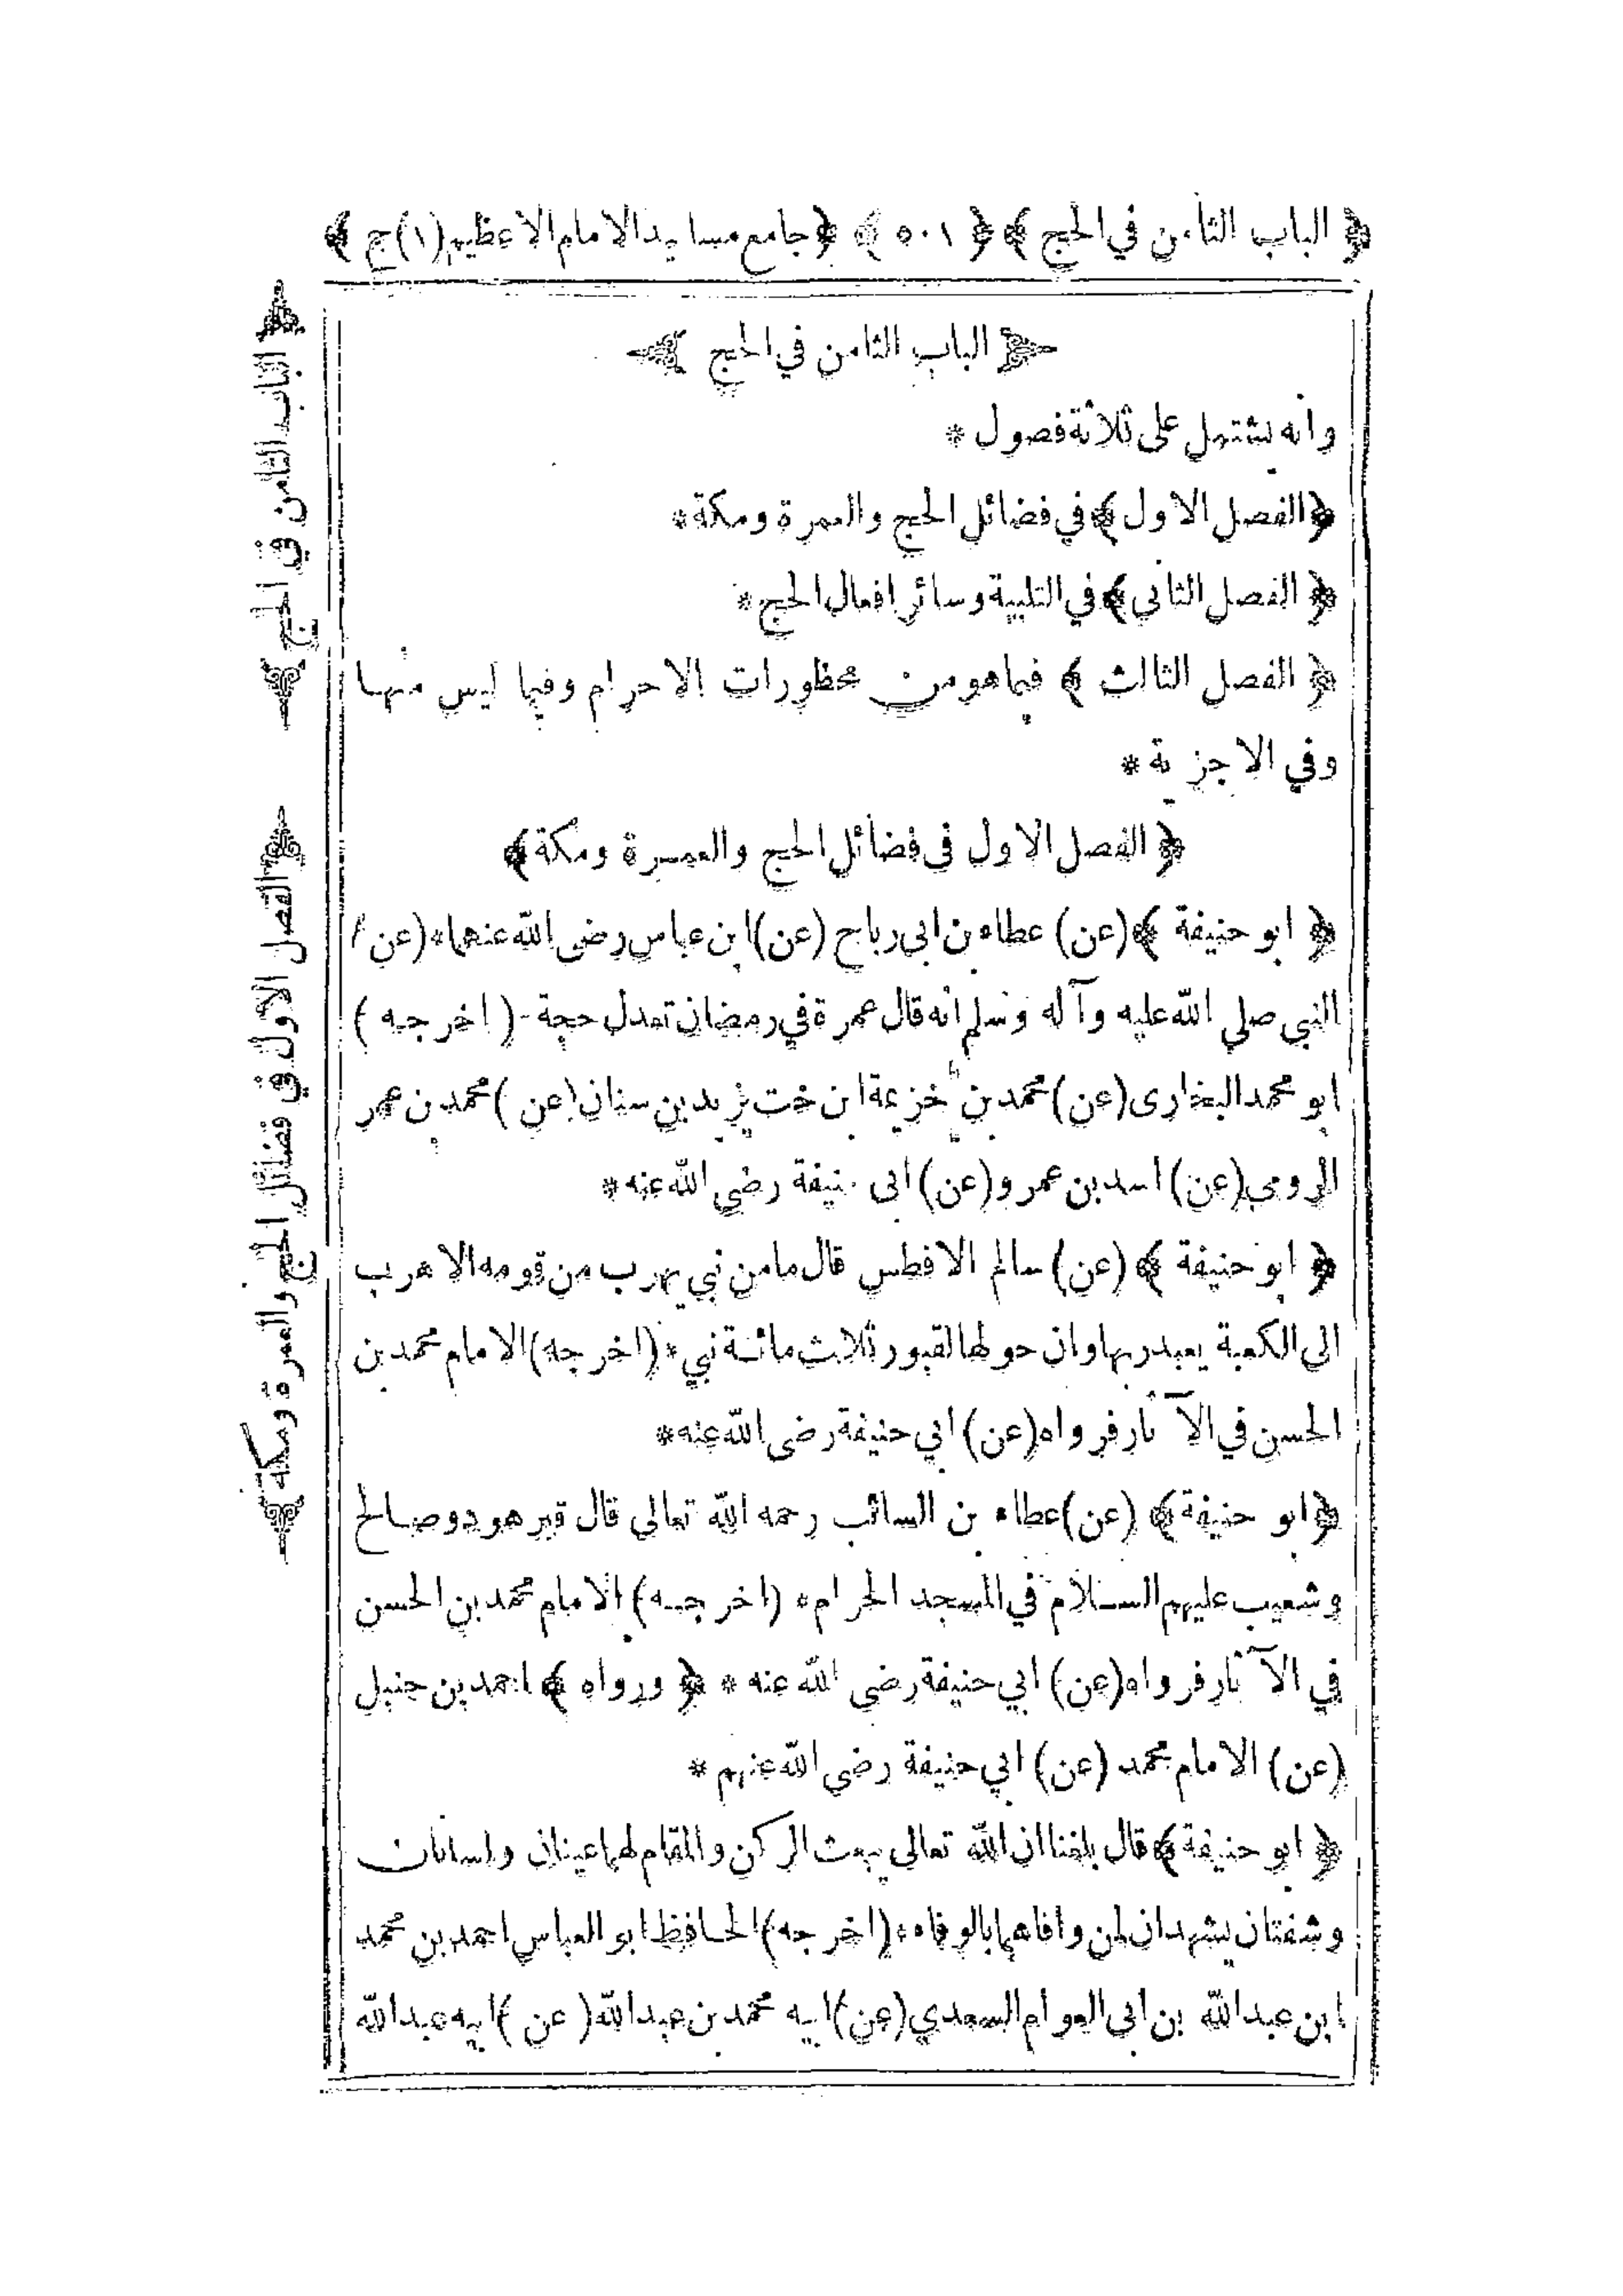 ﴿ الباب الثامن في الحج ﴾ ﴿ ٥٠١ ﴾ ﴿ جامع مسانيد الامام الاعظم (١) ج ﴾
﴿ الباب الثامن في الحج ﴾
وانه يشتمل على ثلاثة فصول *
﴿ الفصل الاول ﴾ في فضائل الحج والعمرة ومكة *
﴿ الفصل الثاني ﴾ في التلبية وسائر افعال الحج *
﴿ الفصل الثالث ﴾ فيما هو من محظورات الاحرام وفيما ليس منها
وفي الاجزية *
﴿ الفصل الاول في فضائل الحج والعمرة ومكة ﴾
﴿ ابو حنيفة ﴾ (عن) عطاء بن ابي رباح (عن) ابن عباس رضى الله عنهما * (عن)
النبي صلى الله عليه وآله وسلم انه قال عمرة في رمضان تعدل حجة - (اخرجه)
ابو محمد البخارى (عن) محمد بن خزيمة ابن خت يزيد بن سنان (عن) محمد بن عمر
الرومي (عن) اسد بن عمرو (عن) ابى حنيفة رضي الله عنه *
﴿ ابو حنيفة ﴾ (عن) سالم الافطس قال ما من نبي يهرب من قومه الا هرب
الى الكعبة يعبد ربها وان حولها لقبور ثلاث مائة نبي * (اخرجه) الامام محمد بن
الحسن في الآثار فرواه (عن) ابي حنيفة رضى الله عنه *
﴿ ابو حنيفة ﴾ (عن) عطاء بن السائب رحمه الله تعالى قال قبر هود وصالح
وشعيب عليهم السلام في المسجد الحرام * (اخرجه) الامام محمد بن الحسن
في الآثار فرواه (عن) ابي حنيفة رضى الله عنه * ﴿ ورواه ﴾ احمد بن حنبل
(عن) الامام محمد (عن) ابي حنيفة رضى الله عنهم *
﴿ ابو حنيفة ﴾ قال بلغنا ان الله تعالى يبعث الركن والمقام لهما عينان ولسانان
وشفتان يشهدان لمن وافاهما بالوفاء * (اخرجه) الحافظ ابو العباس احمد بن محمد
ابن عبد الله بن ابى العوام السعدي (عن) ابيه محمد بن عبد الله (عن) ابيه عبد الله
﴿ الباب الثامن في الحج ﴾
﴿ الفصل الاول في فضائل الحج والعمرة ومكة ﴾